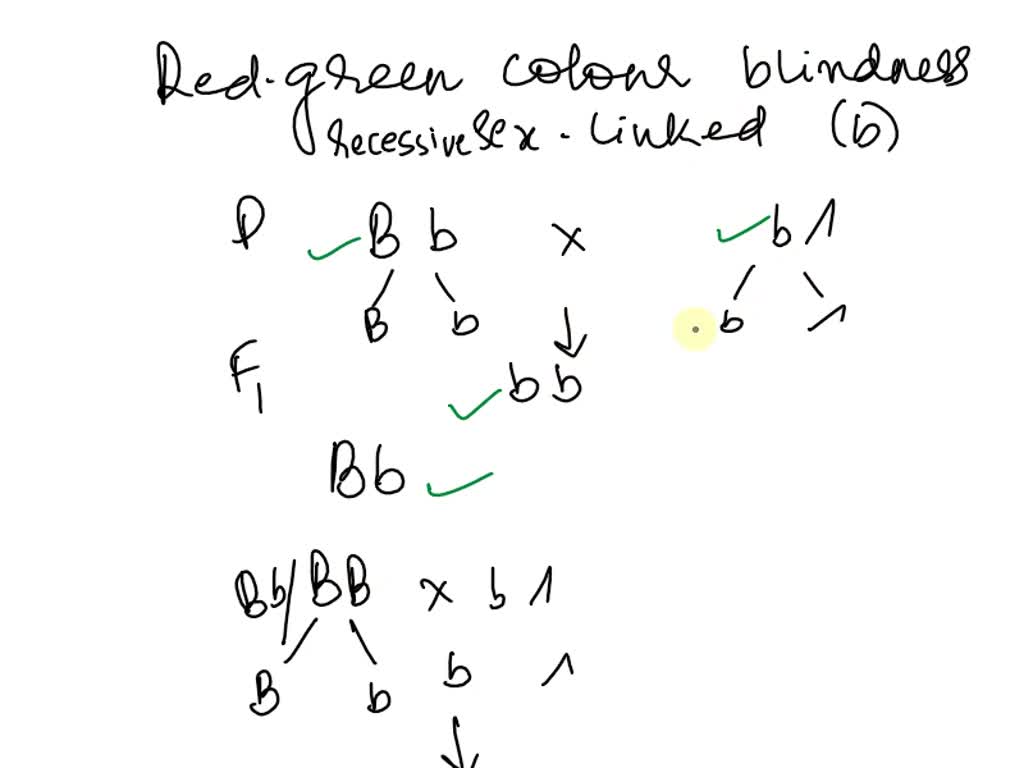 Red-green colour blindness
recessive sex-linked (b)
P B b x b 1
B b b 1
F1 b b
Bb
Bb/BB x b 1
B b b 1